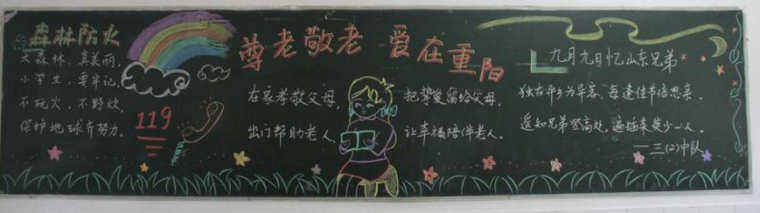 森林防火
大森林，真美丽，
小学生，要牢记，
不玩火，不野炊，
保护地球齐努力。
119
尊老敬老 爱在重阳
在家孝敬父母，把挚爱留给父母，
出门帮助老人，让幸福陪伴老人。
九月九日忆山东兄弟
独在异乡为异客，每逢佳节倍思亲。
遥知兄弟登高处，遍插茱萸少一人。
——三(2)中队